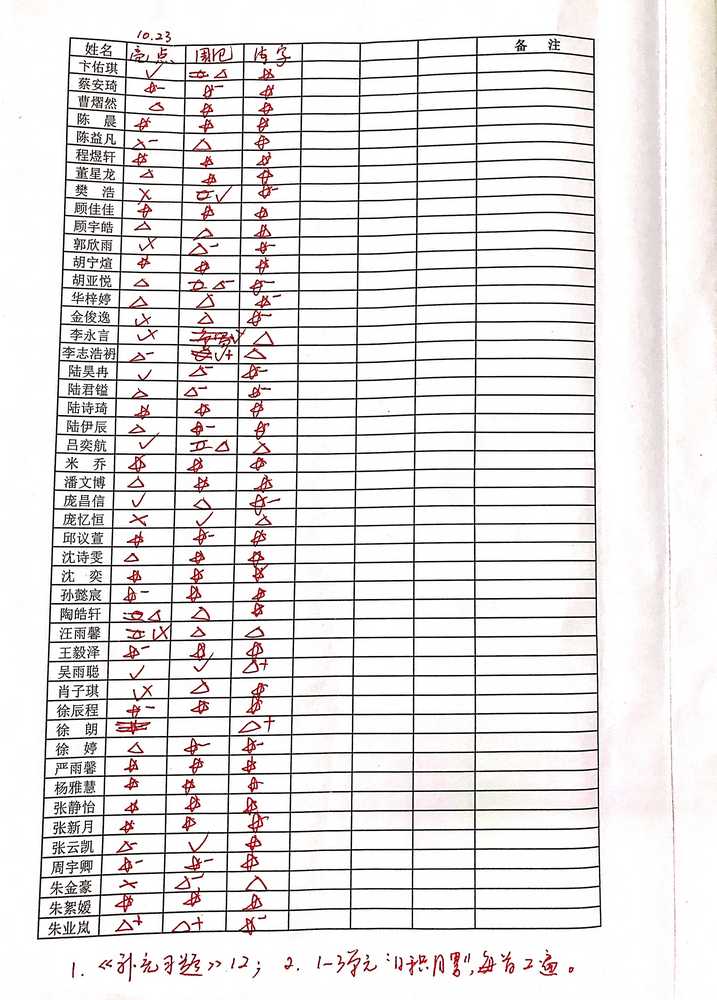 10.23
姓名 亮点 围巴 选字 备 注
卞佑琪 ✓ 二 △ ☆
蔡安琦 ☆- ☆- ☆
曹熠然 △ ☆ ☆
陈 晨 ☆ ☆ ☆
陈益凡 ×- △ ☆
程煜轩 ☆ ☆ ☆
董星龙 △ ☆ ☆
樊 浩 × 二 ✓ ☆-
顾佳佳 ☆ ☆ ☆
顾宇皓 △ △ ☆
郭欣雨 ✓× △- ☆-
胡宁煊 ☆ ☆ ☆
胡亚悦 △ 二 △- ☆-
华梓婷 △ △ ☆-
金俊逸 ✓× △ ☆-
李永言 ✓× ✓ △
李志浩礽 △- ✓+ △
陆昊冉 ✓ △- ☆-
陆君镒 △ △- ☆-
陆诗琦 ☆ ☆ ☆
陆伊辰 △ ☆- ☆
吕奕航 ✓ 二 △ △
米 乔 ☆ ☆ ☆
潘文博 △ ☆ ☆
庞昌信 ✓ △ ☆-
庞忆恒 × ✓ △
邱议萱 ☆ ☆- ☆
沈诗雯 △ ☆ ☆
沈 奕 ☆ ☆ ☆
孙懿宸 ☆- ☆ ☆
陶皓轩 二 △ △ ☆
汪雨馨 二 ✓× △ △
王毅泽 ☆- ☆ ☆
吴雨聪 ✓ ✓ △+
肖子琪 ✓× △ ☆
徐辰程 ☆- ☆ ☆
徐 朗 △+
徐 婷 △ ☆- ☆-
严雨馨 ☆ ☆ ☆
杨雅慧 ☆ ☆ ☆
张静怡 ☆ ☆ ☆
张新月 ☆ ☆ ☆
张云凯 △- ✓ ☆
周宇卿 ☆- ☆- ☆
朱金豪 × △- △
朱絮媛 ☆ ☆ ☆
朱业岚 △+ △+ ☆-
1.《补充习题》12； 2. 1-3单元"日积月累"，每首2遍。